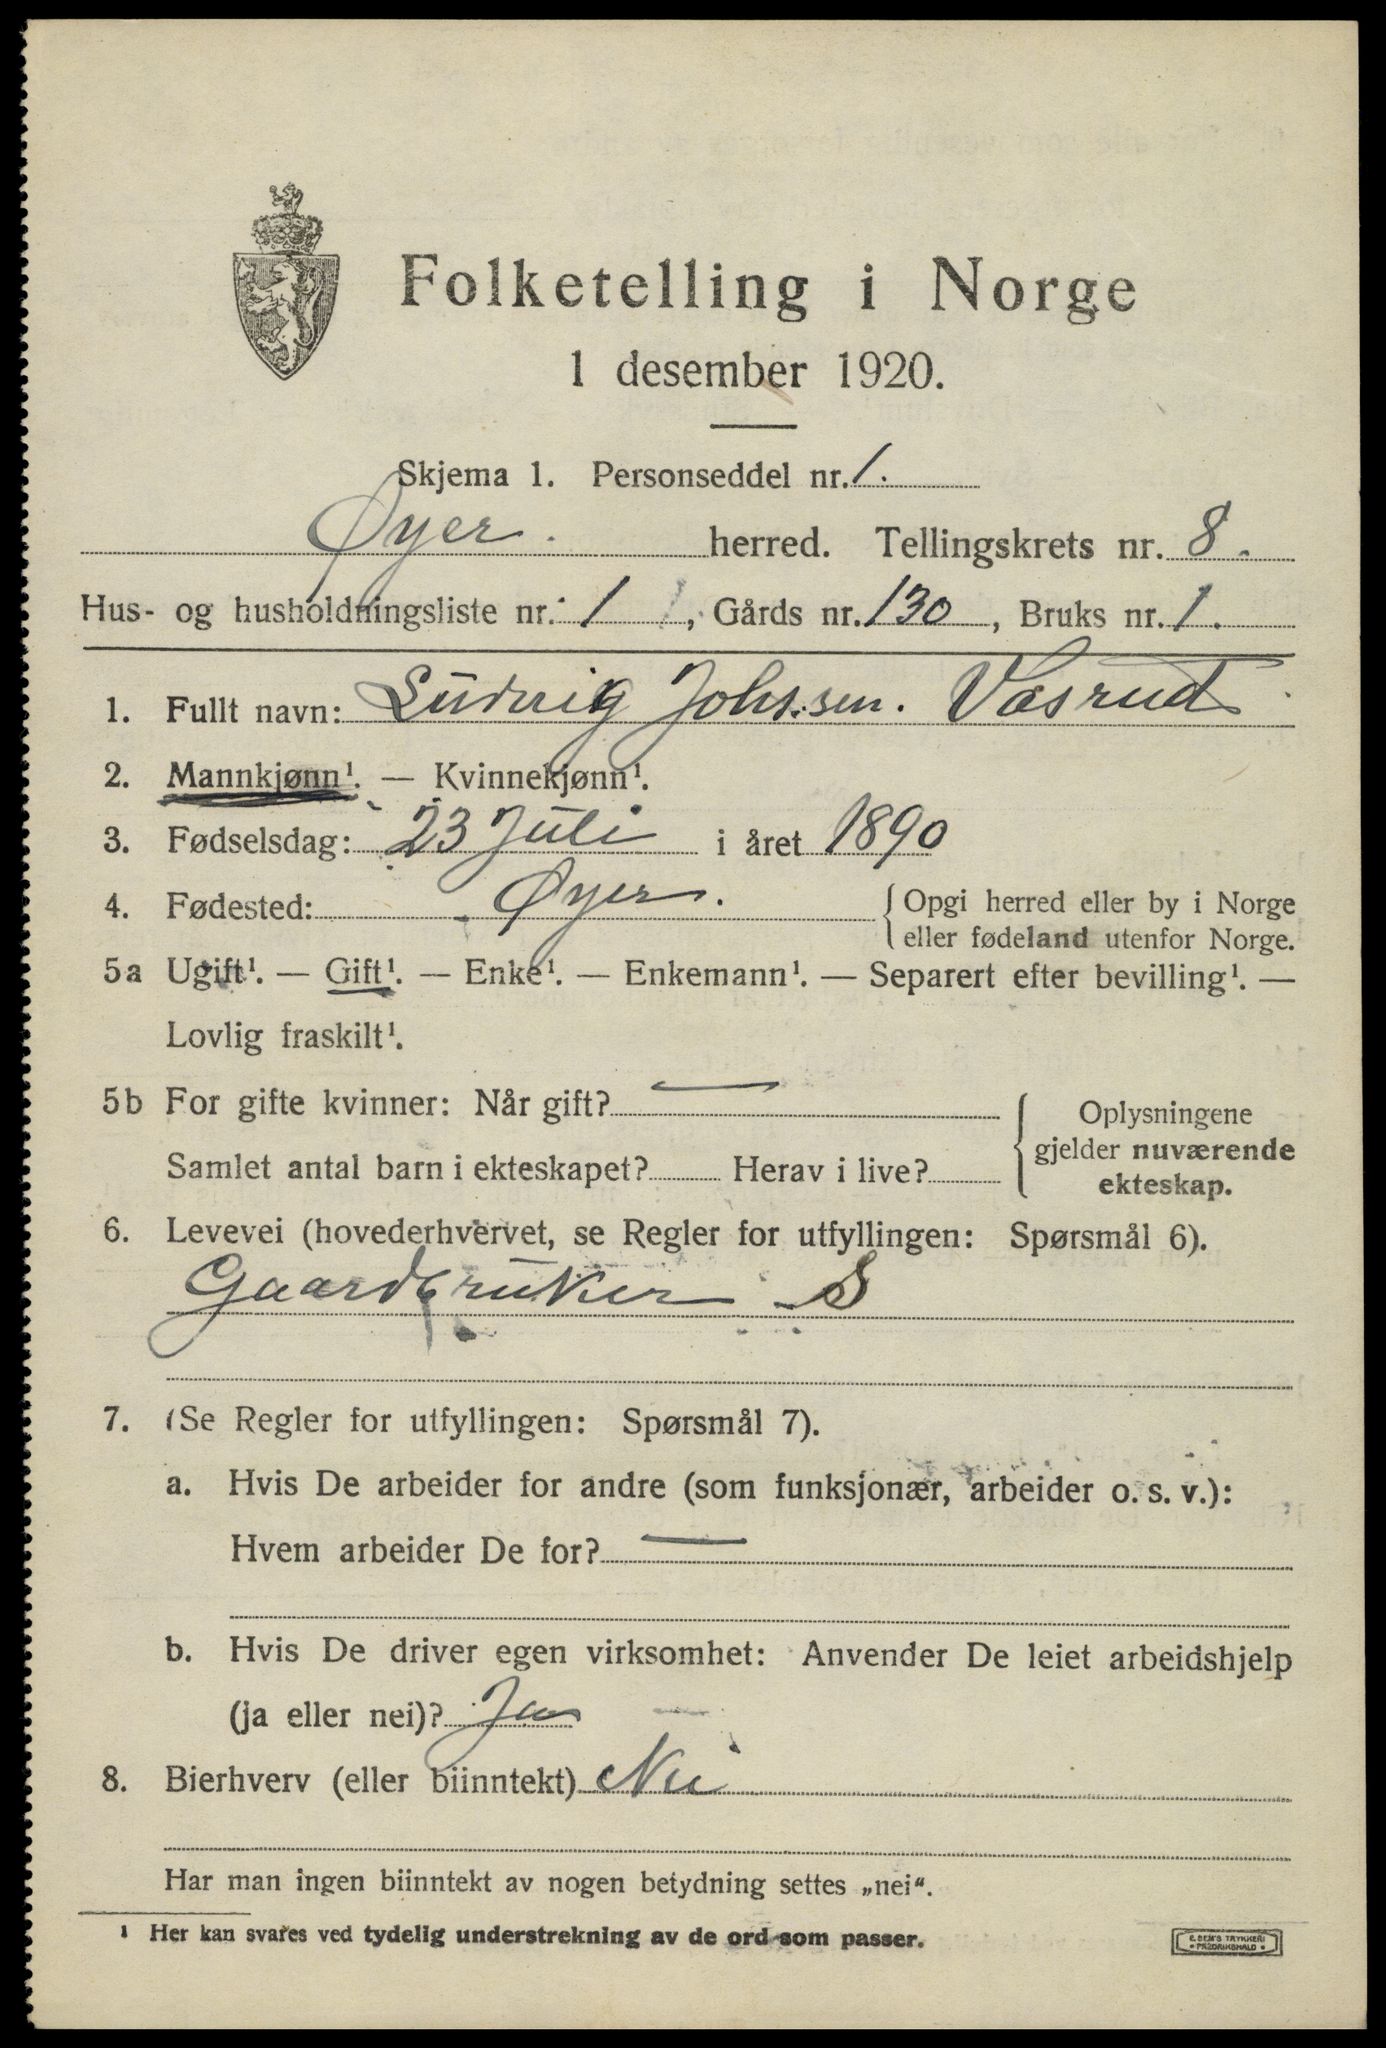 Folketelling i Norge
1 desember 1920.
Skjema 1. Personseddel nr. 1.
Øyer. herred. Tellingskrets nr. 8.
Hus- og husholdningsliste nr. 1, Gårds nr. 130, Bruks nr. 1.
1. Fullt navn: Ludvig Johs.sen. Vasrud
2. Mannkjønn¹. — Kvinnekjønn¹.
3. Fødselsdag: 23 Juli i året 1890
4. Fødested: Øyer. { Opgi herred eller by i Norge
eller fødeland utenfor Norge.
5a Ugift¹. — Gift¹. — Enke¹. — Enkemann¹. — Separert efter bevilling¹. —
Lovlig fraskilt¹.
5b For gifte kvinner: Når gift? —
Samlet antal barn i ekteskapet? Herav i live?
{ Oplysningene
gjelder nuværende
ekteskap.
6. Levevei (hovederhvervet, se Regler for utfyllingen: Spørsmål 6).
Gaardbruker S
7. (Se Regler for utfyllingen: Spørsmål 7).
a. Hvis De arbeider for andre (som funksjonær, arbeider o. s. v.):
Hvem arbeider De for? —
b. Hvis De driver egen virksomhet: Anvender De leiet arbeidshjelp
(ja eller nei)? Ja
8. Bierhverv (eller biinntekt) Nei
Har man ingen biinntekt av nogen betydning settes „nei“.
¹ Her kan svares ved tydelig understrekning av de ord som passer.
E. SEM'S TRYKKERI
FREDRIKSHALD